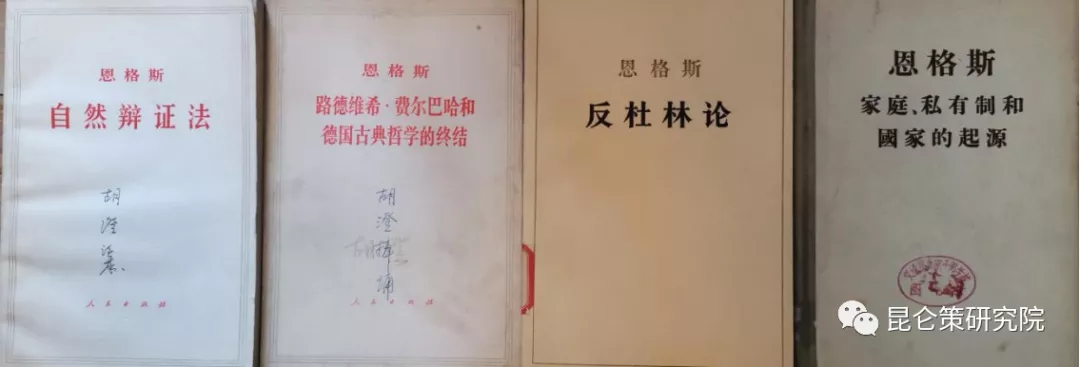 恩格斯
自然辩证法
胡
澄
人民出版社
恩格斯
路德维希·费尔巴哈和
德国古典哲学的终结
胡
澄
人民出版社
恩格斯
反杜林论
恩格斯
家庭、私有制和
國家的起源
昆仑策研究院